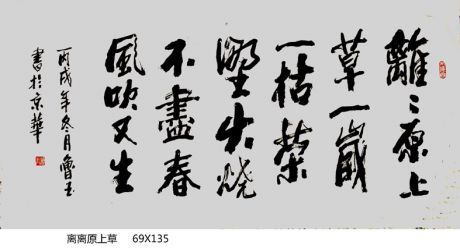 離〻原上
草一歲
一枯榮
野火燒
不盡春
風吹又生
丙戌年冬月魯玉
書於京華
离离原上草 69X135